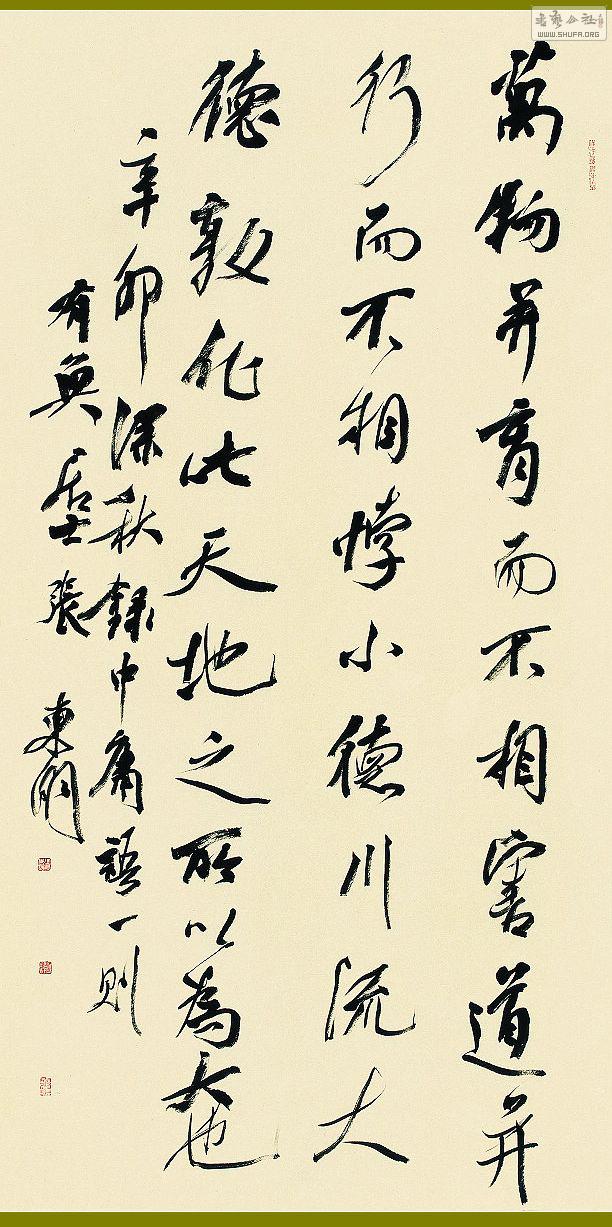 萬物并育而不相害道并
行而不相悖小德川流大
德敦化此天地之所以為大也
辛卯深秋錄中庸語一則
有無居士張東明
书艺公社
WWW.SHUFA.ORG